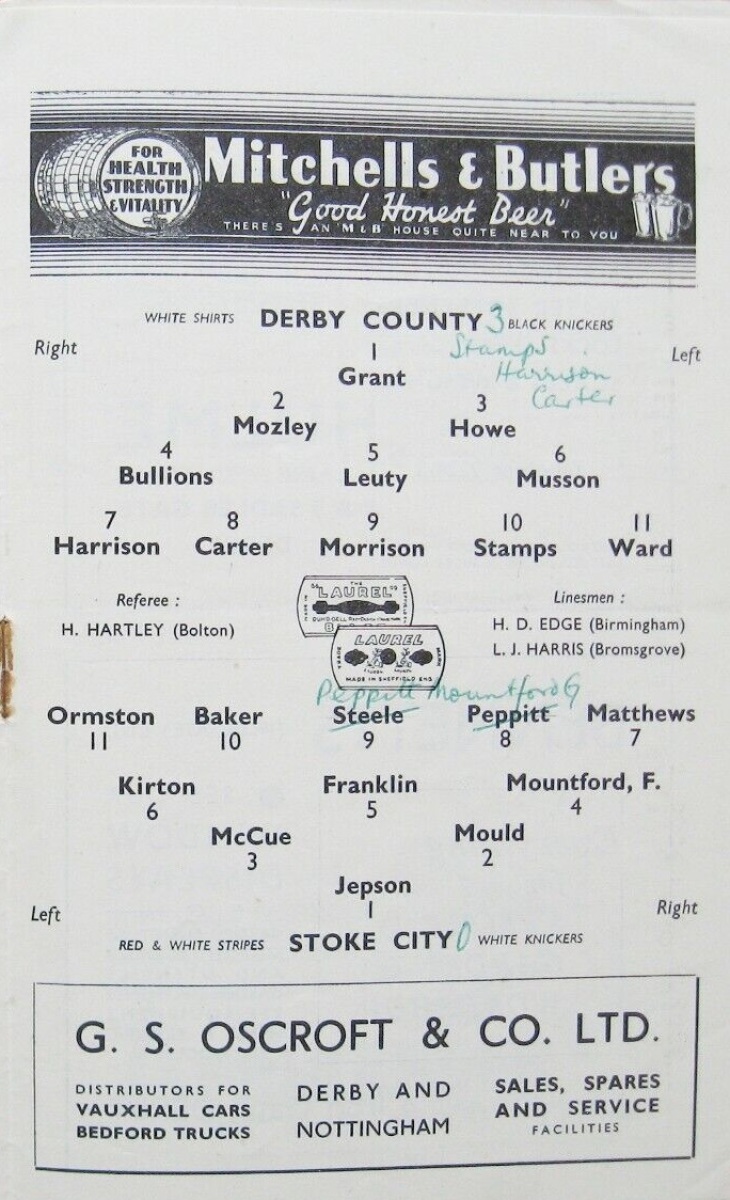 FOR
HEALTH
STRENGTH
& VITALITY
Mitchells & Butlers
"Good Honest Beer"
THERE'S AN 'M & B' HOUSE QUITE NEAR TO YOU
WHITE SHIRTS DERBY COUNTY 3 BLACK KNICKERS
Right 1 Stamps Left
Grant Harrison
2 3 Carter
Mozley Howe
4 5 6
Bullions Leuty Musson
7 8 9 10 11
Harrison Carter Morrison Stamps Ward
Referee : Linesmen :
H. HARTLEY (Bolton) H. D. EDGE (Birmingham)
L. J. HARRIS (Bromsgrove)
THE
"LAUREL"
LAUREL
TRADE MARK
MADE IN SHEFFIELD ENG.
Peppitt Mountford G
Ormston Baker Steele Peppitt Matthews
11 10 9 8 7
Kirton Franklin Mountford, F.
6 5 4
McCue Mould
3 2
Jepson
Left 1 Right
RED & WHITE STRIPES STOKE CITY 0 WHITE KNICKERS
G. S. OSCROFT & CO. LTD.
DISTRIBUTORS FOR
VAUXHALL CARS
BEDFORD TRUCKS
DERBY AND
NOTTINGHAM
SALES, SPARES
AND SERVICE
FACILITIES